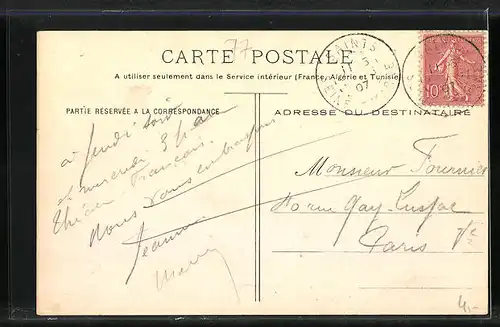 77
CARTE POSTALE
A utiliser seulement dans le Service intérieur (France, Algérie et Tunisie)
PARTIE RÉSERVÉE A LA CORRESPONDANCE
ADRESSE DU DESTINATAIRE
07
10
à jeudi soir
et mercredi
Théâtre Français.
Nous vous embrassons
Jeanne
Monsieur Fournier
rue Gay-Lussac
Paris
4,-